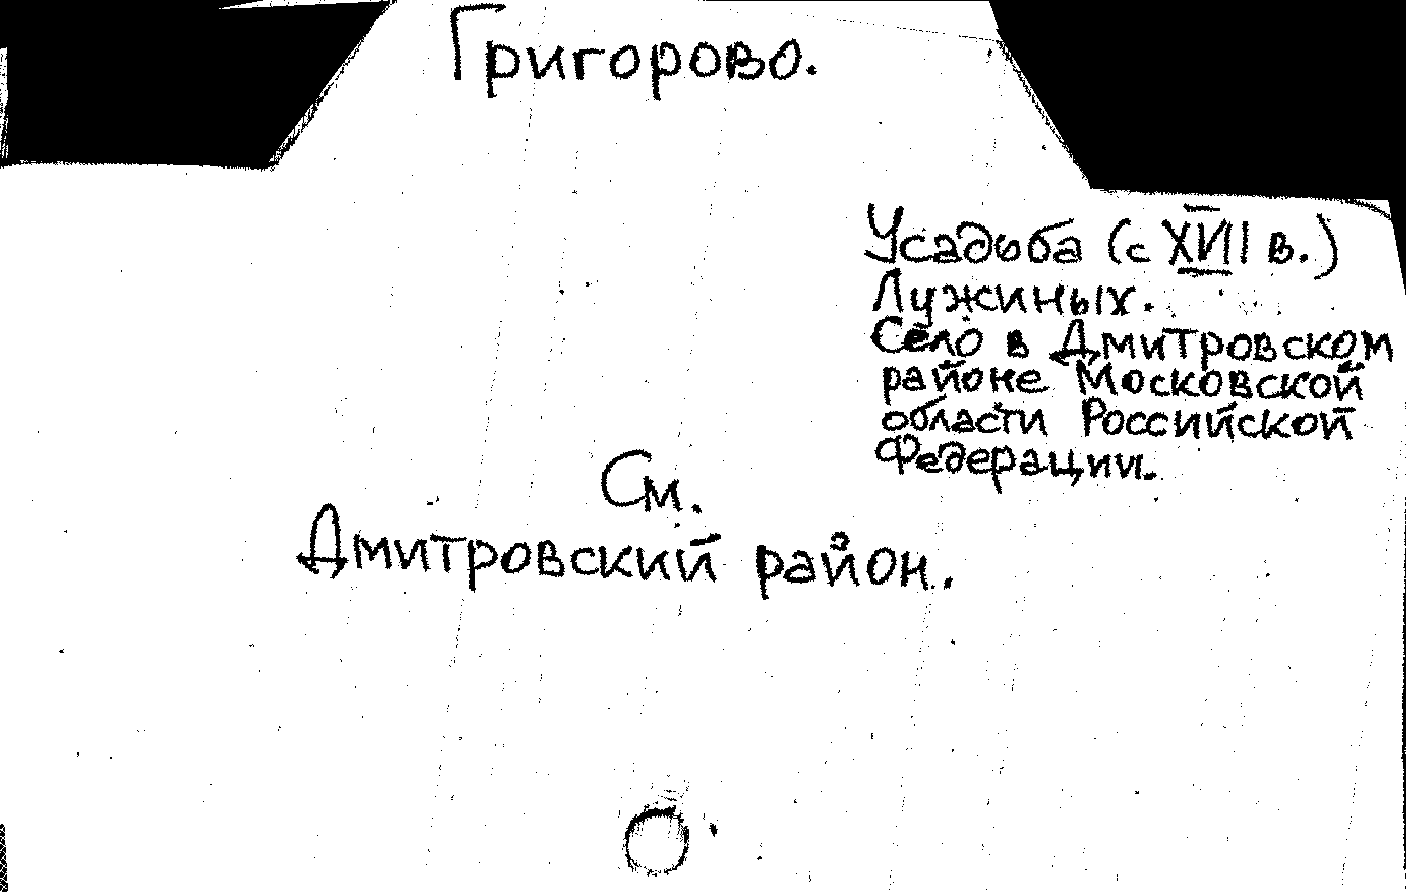 Григорово.
Усадьба (с XVII в.)
Лужиных.
Село в Дмитровском
районе Московской
области Российской
Федерации.
См.
Дмитровский район.